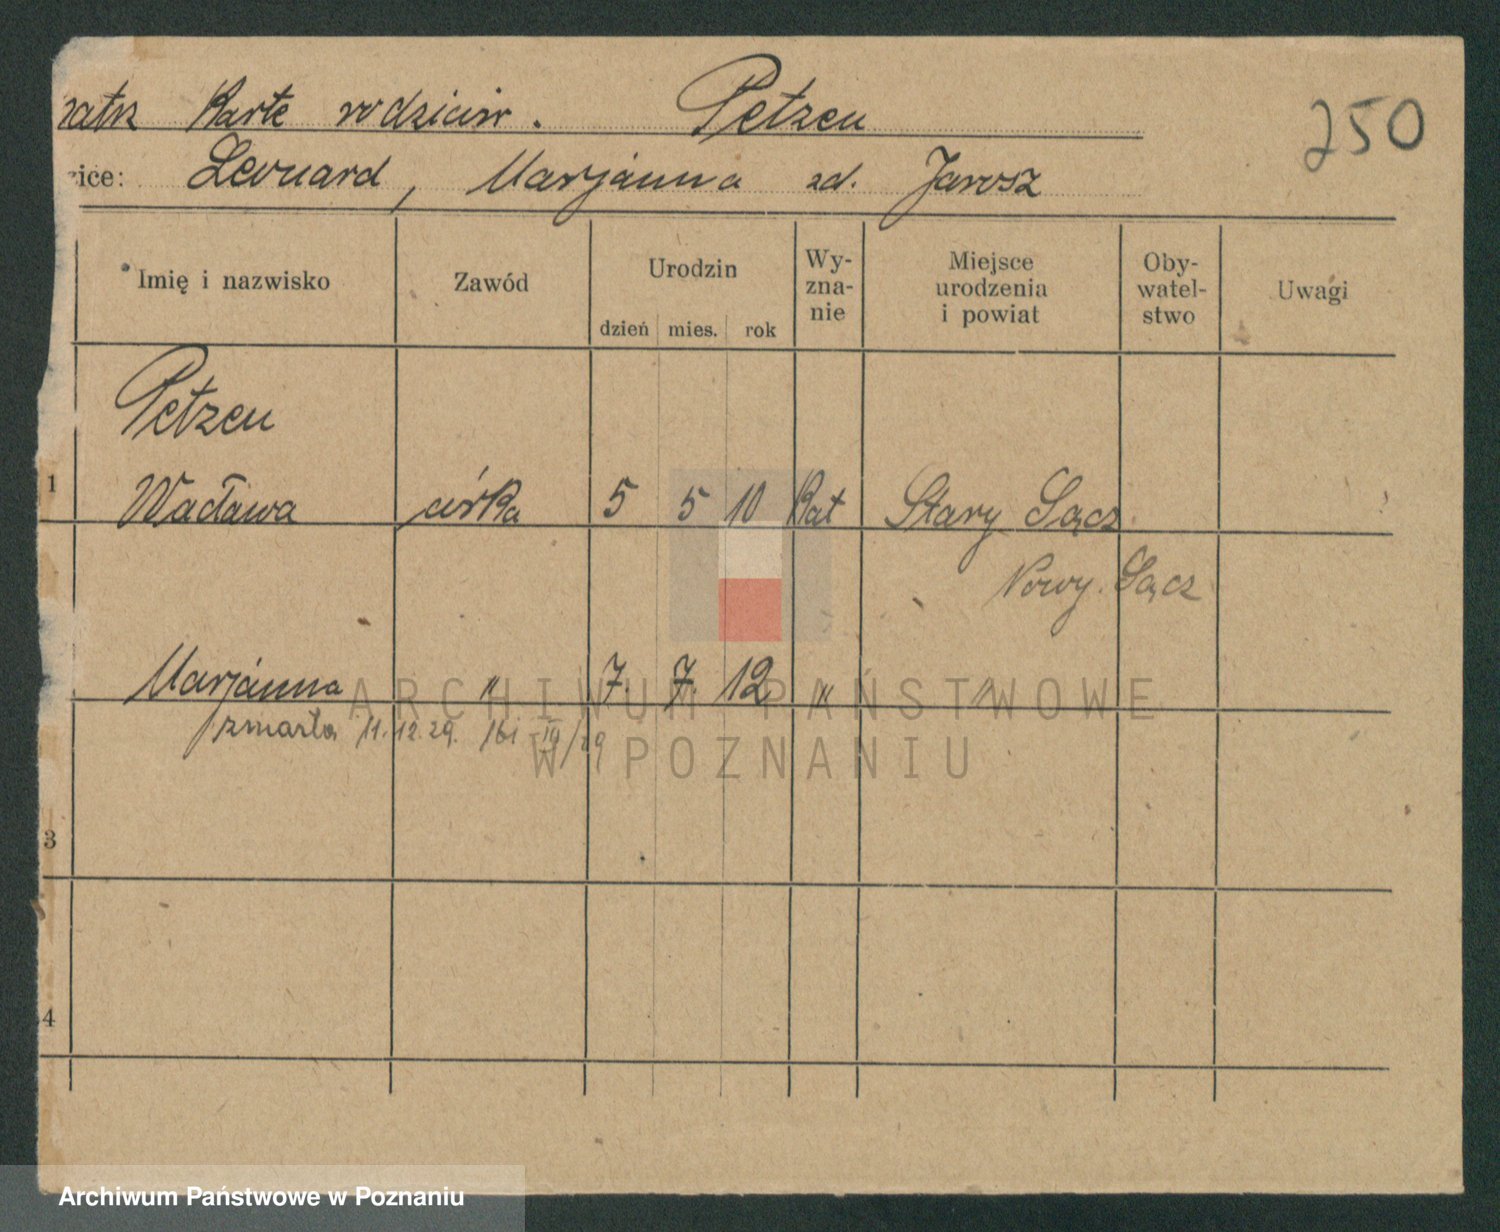 patrz Karte rodziców. Petzen
250
zice: Leonard, Marjanna zd. Jarosz
Imię i nazwisko Zawód Urodzin dzień mies. rok Wy-zna-nie Miejsce urodzenia i powiat Oby-watel-stwo Uwagi
Petzen
1 Wacława córka 5 5 10 Kat Stary Sącz
Nowy. Sącz
Marjanna " 7. 7. 12 " "
zmarła 11.12.29.
3
4
ARCHIWUM PAŃSTWOWE
W POZNANIU
Archiwum Państwowe w Poznaniu